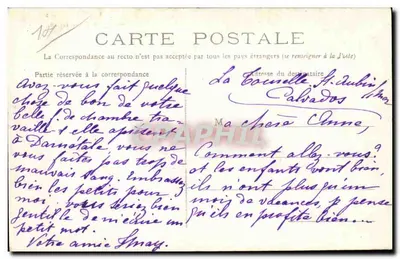 CARTE POSTALE
La Correspondance au recto n'est pas acceptée par tous les pays étrangers (se renseigner à la Poste)
Partie réservée à la correspondance
Adresse du destinataire
La Tourelle St Aubin s/mer
Calvados
Ma chère Anne,
Comment allez-vous?
et les enfants vont bien,
ils n'ont plus qu'un
mois de vacances, je pense
qu'ils en profite bien...
Avez-vous fait quelque
chose de bon de votre
belle? de chambre tra-
vaille t'elle à présent
à Darnétale, vous ne
vous faites pas trop de
mauvais sang. Embrassez
bien les petits pour
moi, vous seriez bien
gentille de m'écrire un
petit mot.
Votre amie